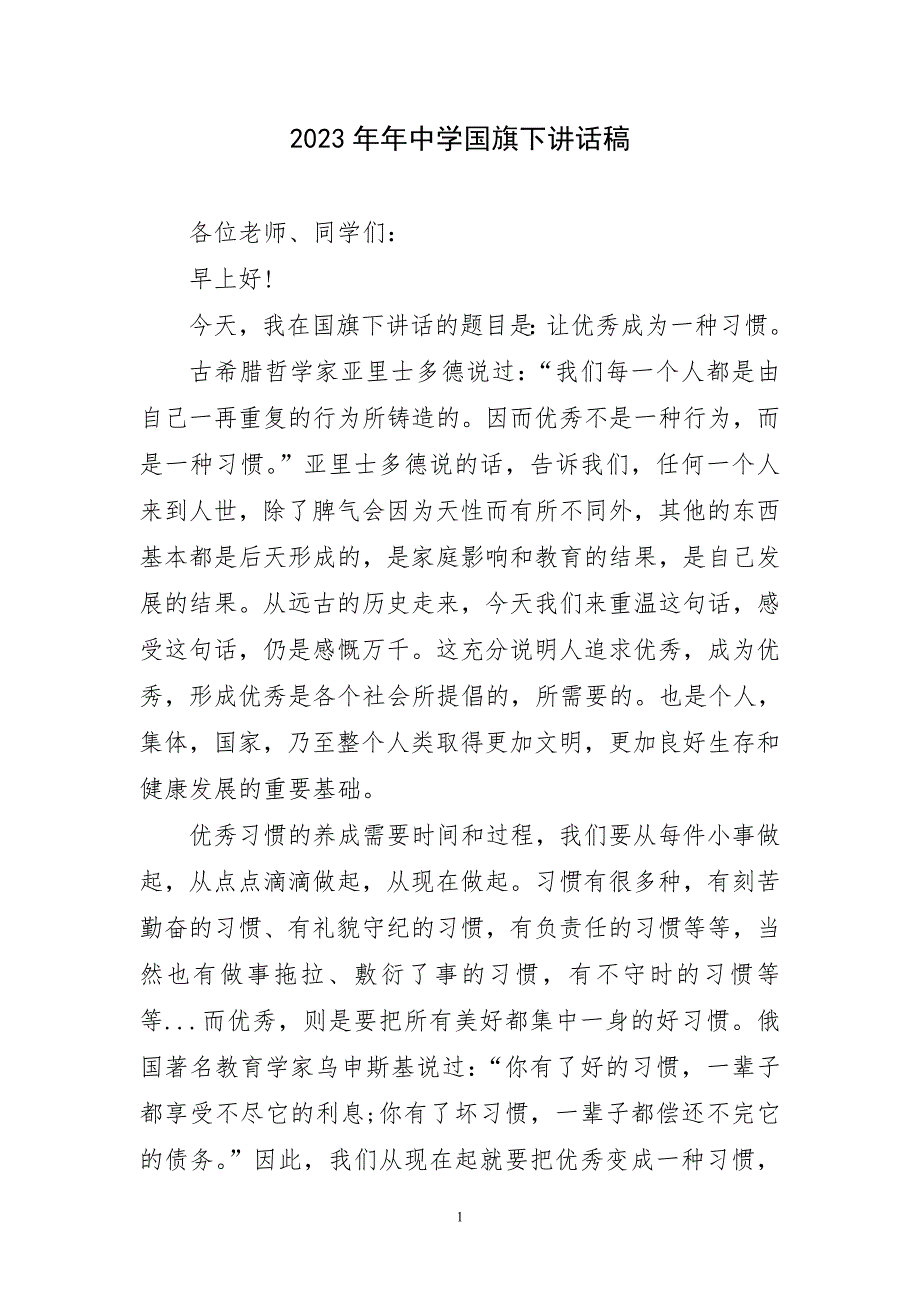 2023年年中学国旗下讲话稿
各位老师、同学们：
早上好!
今天，我在国旗下讲话的题目是：让优秀成为一种习惯。
古希腊哲学家亚里士多德说过：“我们每一个人都是由
自己一再重复的行为所铸造的。因而优秀不是一种行为，而
是一种习惯。”亚里士多德说的话，告诉我们，任何一个人
来到人世，除了脾气会因为天性而有所不同外，其他的东西
基本都是后天形成的，是家庭影响和教育的结果，是自己发
展的结果。从远古的历史走来，今天我们来重温这句话，感
受这句话，仍是感慨万千。这充分说明人追求优秀，成为优
秀，形成优秀是各个社会所提倡的，所需要的。也是个人，
集体，国家，乃至整个人类取得更加文明，更加良好生存和
健康发展的重要基础。
优秀习惯的养成需要时间和过程，我们要从每件小事做
起，从点点滴滴做起，从现在做起。习惯有很多种，有刻苦
勤奋的习惯、有礼貌守纪的习惯，有负责任的习惯等等，当
然也有做事拖拉、敷衍了事的习惯，有不守时的习惯等
等...而优秀，则是要把所有美好都集中一身的好习惯。俄
国著名教育学家乌申斯基说过：“你有了好的习惯，一辈子
都享受不尽它的利息;你有了坏习惯，一辈子都偿还不完它
的债务。”因此，我们从现在起就要把优秀变成一种习惯，
1